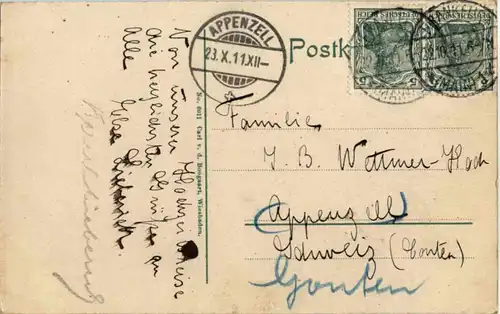 Postk
APPENZELL
23.X.11.XII-
Von unserer Hochzeitsreise
die herzlichsten Grüße an
Alle
No. 6011 Carl v. d. Boogaart, Wiesbaden.
Familie
J. B. Wettmer-Hoch
Appenzell
Schweiz (Gonten)
Gonten